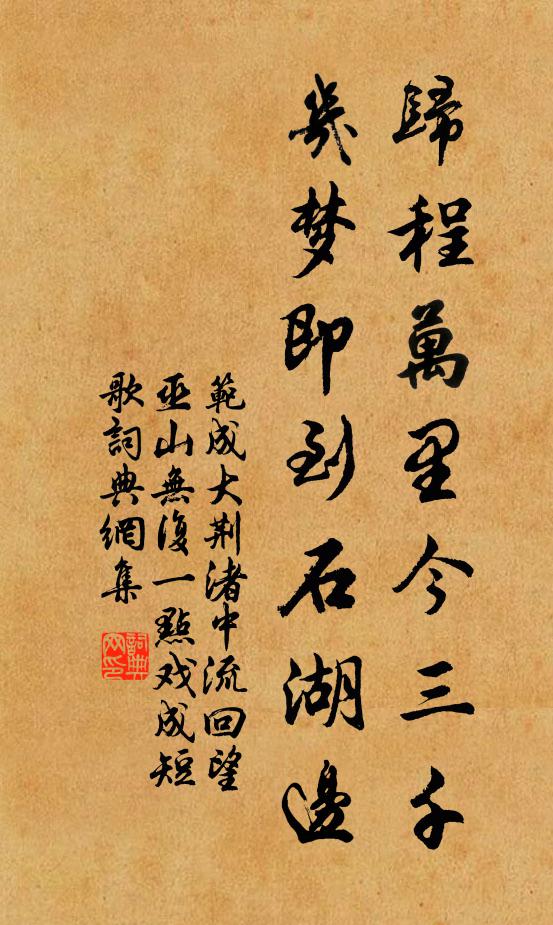 歸程萬里今三千
幾梦即到石湖邊
範成大荆渚中流回望
巫山無復一點戏成短
歌詞典網集
詞典网印